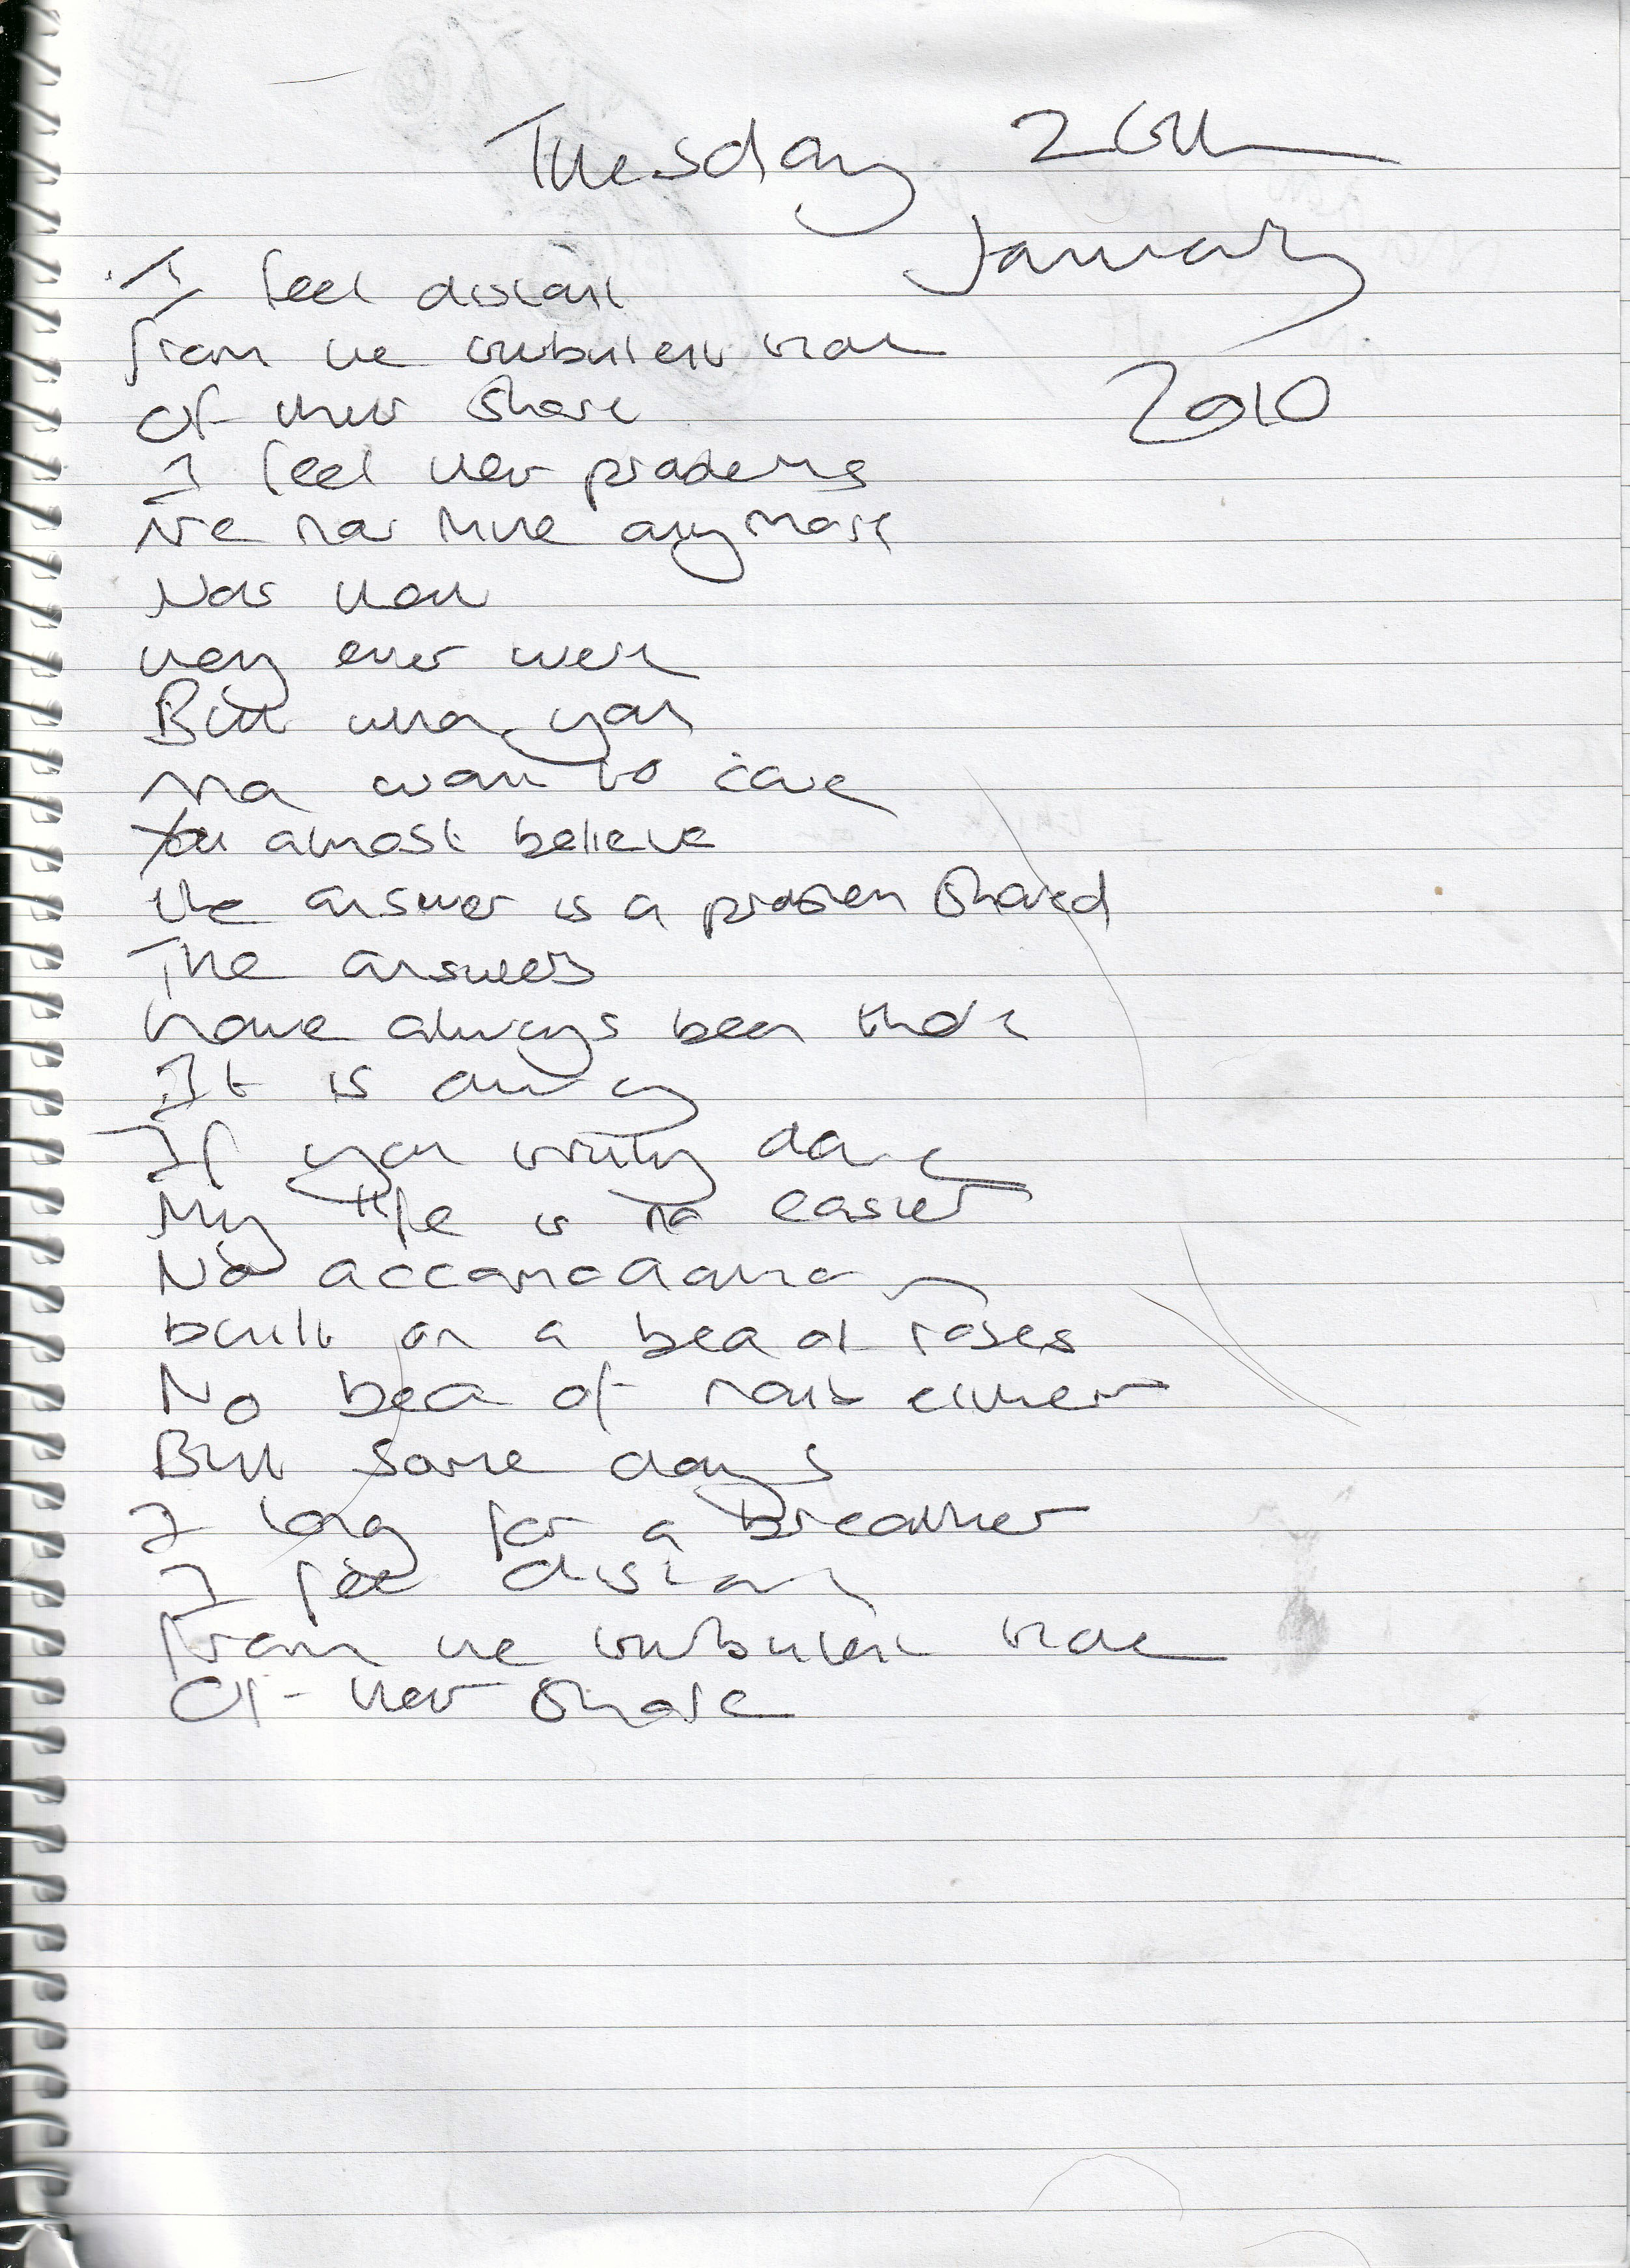 Tuesday 26th
January
2010
I feel distant
from the turbulent tide
Of their shore
I feel their problems
Are not mine anymore
Not that
they ever were
But when you
want to care
You almost believe
the answer is a problem shared
The answers
have always been there
It is only
If you truly dare
My life is no easier
No accomodation
built on a bed of roses
No bed of nails either
But some days
I long for a breather
I feel distant
from the turbulent tide
Of their shore